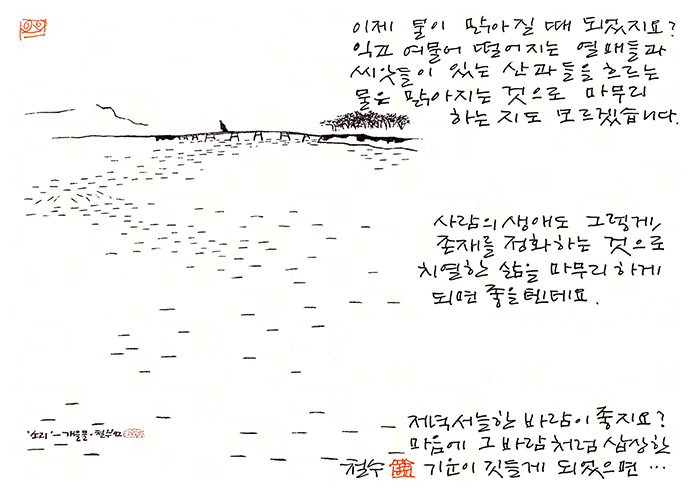 이제 물이 맑아질 때 되었지요?
익고 여물어 떨어지는 열매들과
씨앗들이 있는 산과 들을 흐르는
물은 맑아지는 것으로 마무리
하는지도 모르겠습니다.
사람의 생애도 그렇게,
존재를 정화하는 것으로
치열한 삶을 마무리하게
되면 좋을텐데요.
저녁 서늘한 바람이 좋지요?
마음에 그 바람처럼 삼장한
철수 기운이 깃들게 되었으면…
'소리'-가을물·철수